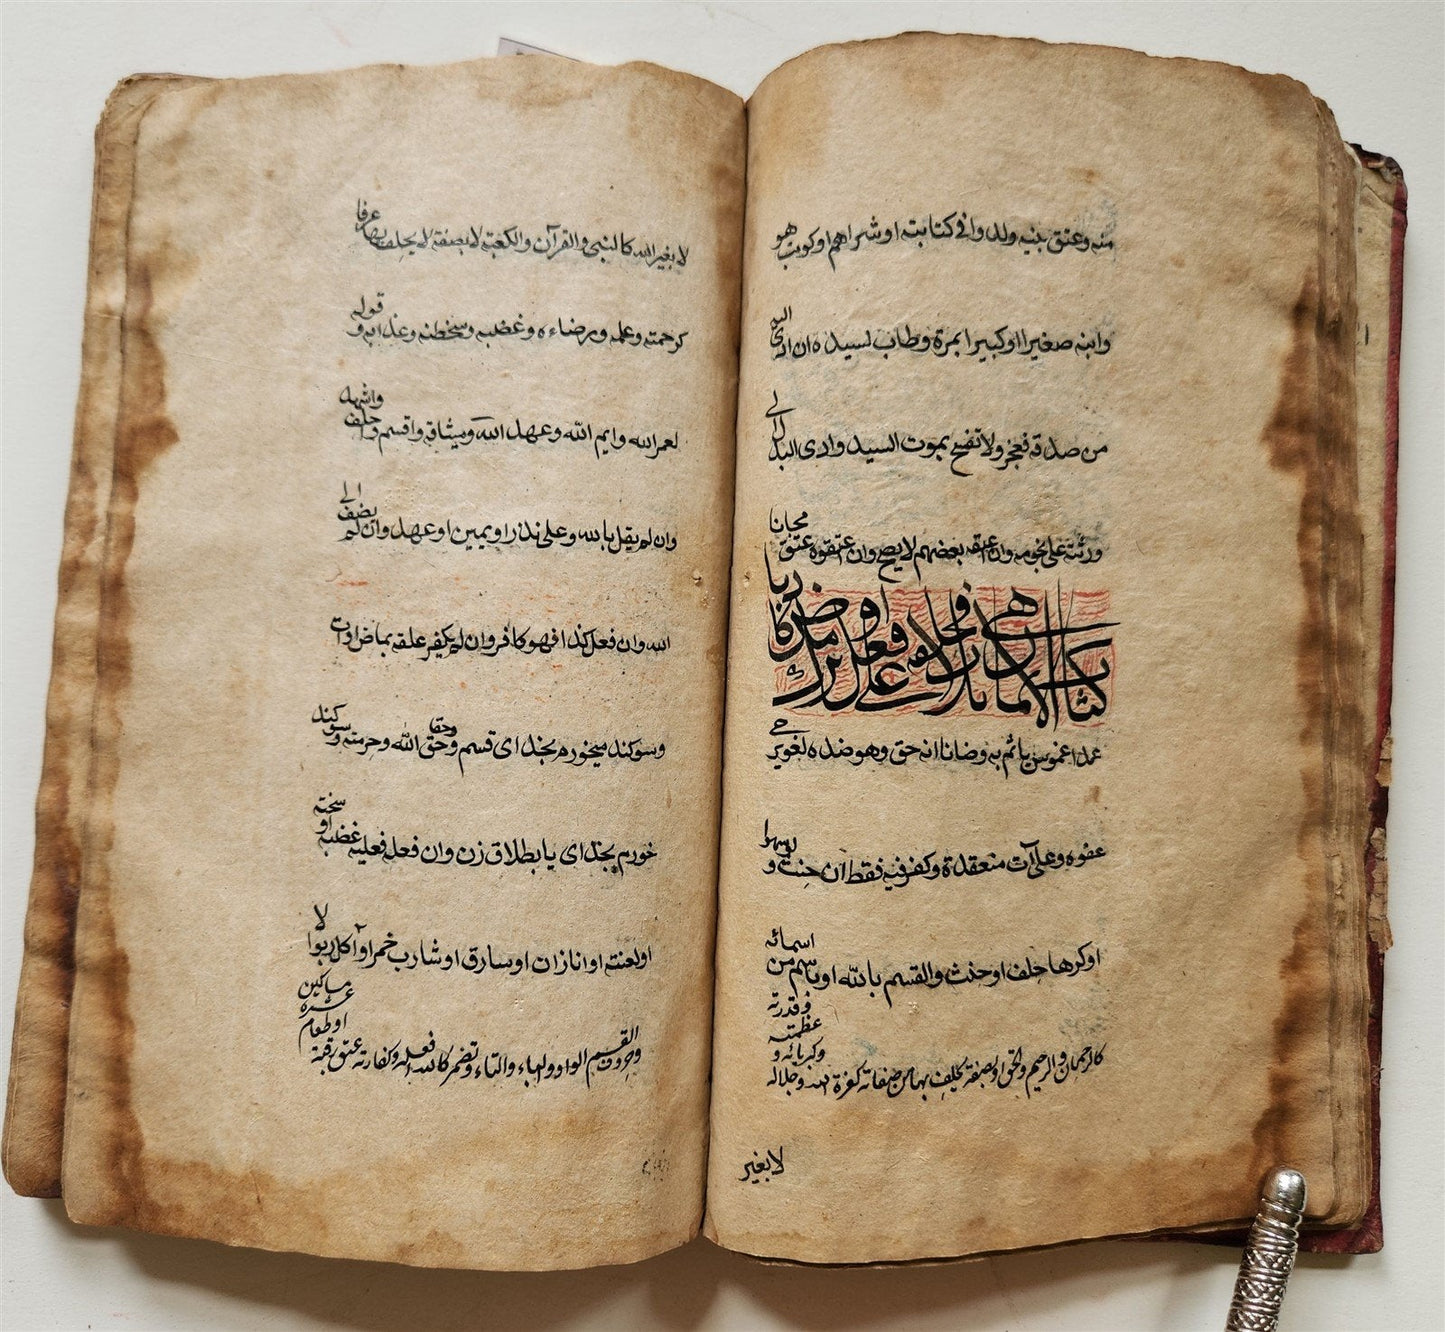 منه وعتق بنيه ولدوا في كتابته او شراهم او كوتب هو
وابنه صغيرا او كبيرا بمرة وطاب لسيده ان ادى اليه
من صدقة فعجز ولا تفسخ بموت السيد وادى البدل الى
ورثته على نجومه وان اعتقه بعضهم لا يصح وان اعتقوه عتق مجانا
كتاب الايمان هى حلفه على فعل او ترك ماض كاذبا
عمدا غموس ياثم به وضانا انه حق وهو ضده لغو يرجى
عفوه وعلى آت منعقدة وكفر فيه فقط ان حنث ولو سهوا
او كرها حلف او حنث والقسم بالله او باسم من اسمائه
كالرحمان والرحيم والحق او بصفة يحلف بها من صفاته كعزة الله وجلاله وكبريائه وعظمته وقدرته
لا بغير
لا بغير الله كالنبى والقرآن والكعبة لا بصفة لا يحلف بها عرفا
كرحمته وعلمه ورضاءه وغضبه وسخطه وعذابه وقوله
لعمر الله وايم الله وعهد الله وميثاقه واقسم واحلف واشهد
وان لم يقل بالله وعلى نذر او يمين او عهد وان لم يضف الى
الله وان فعل كذا فهو كافر وان لم يكفر علقه بماض او آت
وسوكند ميخورم بخداى قسم وحقا وحق الله وحرمته وسوكند
خورم بخداى يا بطلاق زن وان فعل فعليه غضبه او سخته
او لعنته او انا زان او سارق او شارب خمر او آكل ربوا لا
وحروف القسم الواو والباء والتاء وتضمر كالله افعله وكفارته عتق رقبة او طعام عشرة مساكين